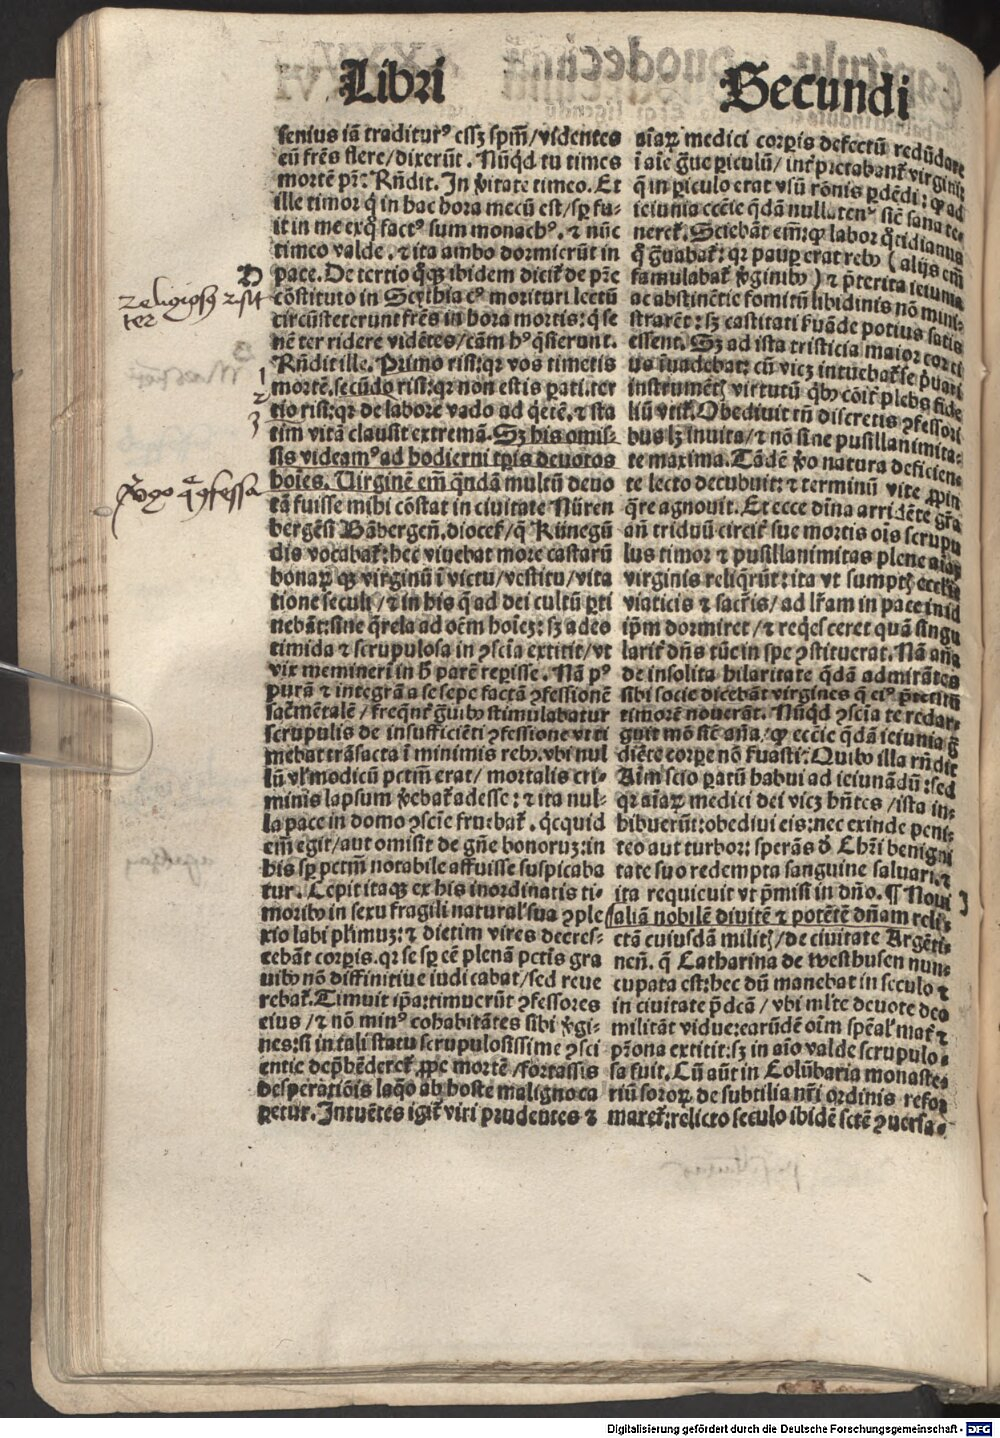 Libri
Secundi
senius iā traditurꝰ essꝫ spm̄/videntes
eū fr̄es flere/dixerūt. Nūqd tu times
mortē pr̄: Rn̄dit. In v̓itate timeo. Et
ille timor q̇ in hac hora mecū est/sꝑ fu-
it in me exq̇ factꝰ sum monachꝰ. ⁊ nūc
timeo valde. ⁊ ita ambo dormierūt in
pace. De tertio qꝫ ibidem dicit̄ de pr̄e
cōstituto in Scythia cꝰ morituri lectū
circūsteterunt fr̄es in hora mortis: q̇ se
nē ter ridere vidētes/cām hꝰ q̄sierunt.
Rn̄dit ille. Primo risi: qr vos timetis
mortē. secūdo risi: qr non estis ꝑati. ter
tio risi: qr de labore vado ad q̇etē. ⁊ sta
tim vitā clausit extremā. Sꝫ his omis-
sis videamꝰ ad hodierni tꝑis deuotos
hoīes. Uirginē em̄ qn̄dā multū deuo
tā fuisse mihi cōstat in ciuitate Nüren
bergēn̄ Bābergen̄. diocet̄/q̄ Künegū
dis vocabat̄: hec viuebat more castarū
bonaꝝ qꝫ virginū ī victu/vestitu/vita
tione seculi/⁊ in his q̄ ad dei cultū ꝑti
nebāt: sine q̄rela ad oēm hoīeꝫ: sꝫ adeo
timida ⁊ scrupulosa in ꝯscia extitit/vt
vix meminerī in h̄ parē reperisse. Nā pꝰ
purā ⁊ integrā a se sepe factā ꝯfessionē
sac̄mētalē/freq̄nt̄ g̃uibꝰ stimulabatur
scrupulis de insufficiēti ꝯfessione vt ti
mebat trāsacta ī minimis rebꝰ. vbi nul
lū vl̓ modicū pctm̄ erat/mortalis cri-
minis lapsum v̓ebat̄ adesse: ⁊ ita nul-
la pace in domo ꝯscīe fruebat̄. q̇cquid
em̄ egit/aut omisit de gn̄e bonoruꝫ: in
his sꝑ pctm̄ notabile affuisse suspicaba
tur. Cepit itaqꝫ ex his inordinatis ti-
moribꝰ in sexu fragili natural̓ sua ꝯple
xio labi pl̓imuꝫ: ⁊ dietim vires decres-
cebāt corꝑis. qr se sꝑ eē plenā pctīs gra
uibꝰ nō diffinitiue iudicabat/sed reue
rebat̄. Timuit ip̄a: timuerūt ꝯfessores
eius/⁊ nō minꝰ cohabitātes sibi v̓gi-
nes: si in tali statu scrupulosissime ꝯsci
entie dep̄hēderet̄ ꝓpe mortē/fortassis
desperatiōis laq̄o ab hoste maligno ca
peretur. Intuētes igit̄ viri prudentes ⁊
aīaꝝ medici corꝑis defectū redūdare
ī aīe g̃ue ꝑiculū/int̄ꝑretabant̄ virginē
q̄ in ꝑiculo erat vsū rōnis ꝑdēdi: ꝙ ad
ieiunia eccīe q̇dā nullatenꝰ sic̄ sana te-
neret̄. Sciebāt em̄: ꝙ labor q̇tidianus
q̇ g̃uabat̄: qr pauꝑ erat rebꝰ (alijs em̄
famulabat̄ v̓ginibꝰ) ⁊ p̄terita ieiunia
ac abstinētie fomitū libidinis nō mini-
strarēt: sꝫ castitati ẜuāde potius satis
essent. Sꝫ ad ista tristicia maior cor ei
us īuadebat: cū viceꝫ intuebat̄ se pͥuari
instrumētꝭ virtutū qbꝰ cōit̄ plebs fide
liū vtit̄. Obediuit tn̄ discretis ꝯfessori
bus lꝫ inuita/⁊ nō sine pusillanimita-
te maxima. Tādē v̓o natura deficien-
te lecto decubuit: ⁊ terminū vite ꝓpin
q̄re agnouit. Et ecce diīna arridēte gr̄a
an̄ triduū circit̄ sue mortis oīs scrupu
lus timor ⁊ pusillanimitas plene aīaꝫ
virginis reliq̄rūt: ita vt sumptꝭ eccl̓ie
viaticis ⁊ sacr̄is/ad lr̄am in pace in id
ip̄m dormiret/⁊ req̇esceret quā singu
larit̄ dn̄s tūc in spe ꝯstituerat. Nā aīa
de insolita hilaritate q̄dā admirātes
sibi socie dicebāt virgines q̄ eiꝰ p̄teritū
timorē nouerāt. Nūqd ꝯscīa te redar-
guit mō sic̄ an̄a/ꝙ eccīe q̄dā ieiunia g̃
diēte corꝑe nō ẜuasti: Quibꝰ illa rn̄dit
Vim scio ꝑatū habui ad ieiunādū: sed
qr aīaꝝ medici dei viceꝫ hn̄tes/ista in-
hibuerūt: obediui eis: nec exinde peni-
teo aut turbor: sperās ꝺ Chr̄i benigni
tate suo redempta sanguine saluari. ⁊
ita requieuit vt p̄misi in dn̄o. ¶ Noui
aliā nobilē diuitē ⁊ potētē dn̄am reli-
ctā cuiusdā militꝭ/de ciuitate Argēti-
nen̄. q̄ Catharina de westhusen nun-
cupata est: hec dū manebat in seculo ⁊
in ciuitate p̄dcā/vbi ml̓te deuote deo
militāt vidue: earūdē oīm spēal̓ mat̄ ⁊
pr̄ona extitit: sꝫ in aīo valde scrupulo-
sa fuit. Cū aūt in Colūbaria monaste-
riū soroꝝ de subtilia nr̄i ordinis refor
maret̄: relicto seculo ibidē sctē ꝯuersa-
D
religiosꝰ risit
ter
1
2
3
v̓go q̄ ꝯfessa
Digitalisierung gefördert durch die Deutsche Forschungsgemeinschaft - DFG